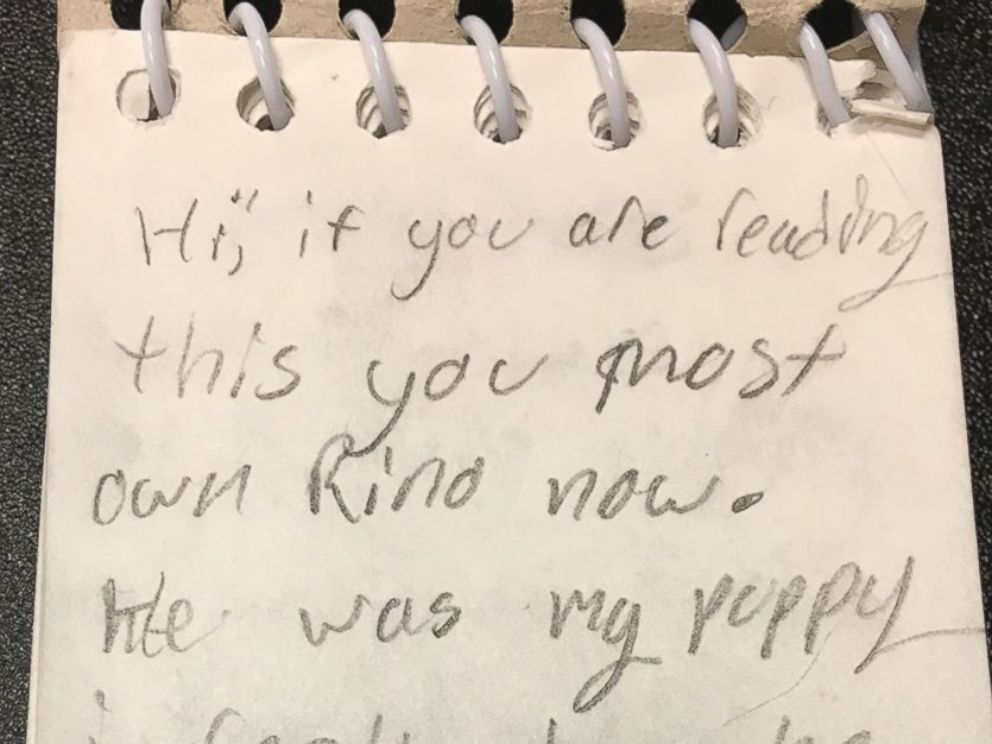 Hi, if you are reading
this you most
own Rino now.
He was my puppy